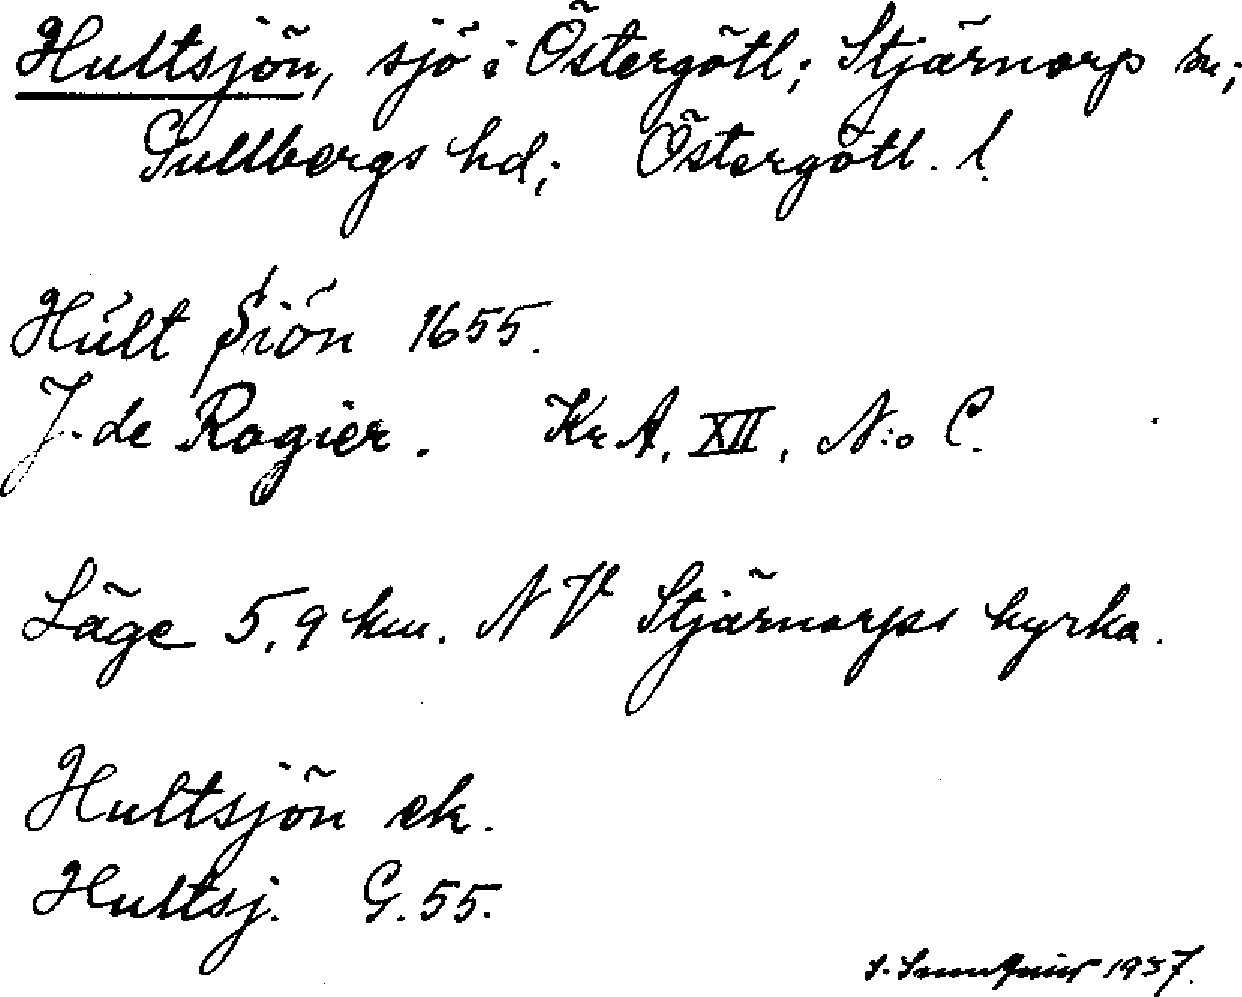 Hultsjön, sjö i Östergötl; Stjärnorp sn;
Gullbergs hd; Östergötl. l.
Hult Siön 1655.
J. de Rogier. Kr A. XII, N:o C.
Läge 5,9 km. N V Stjärnorps kyrka.
Hultsjön ek.
Hultsj. G. 55.
1937.